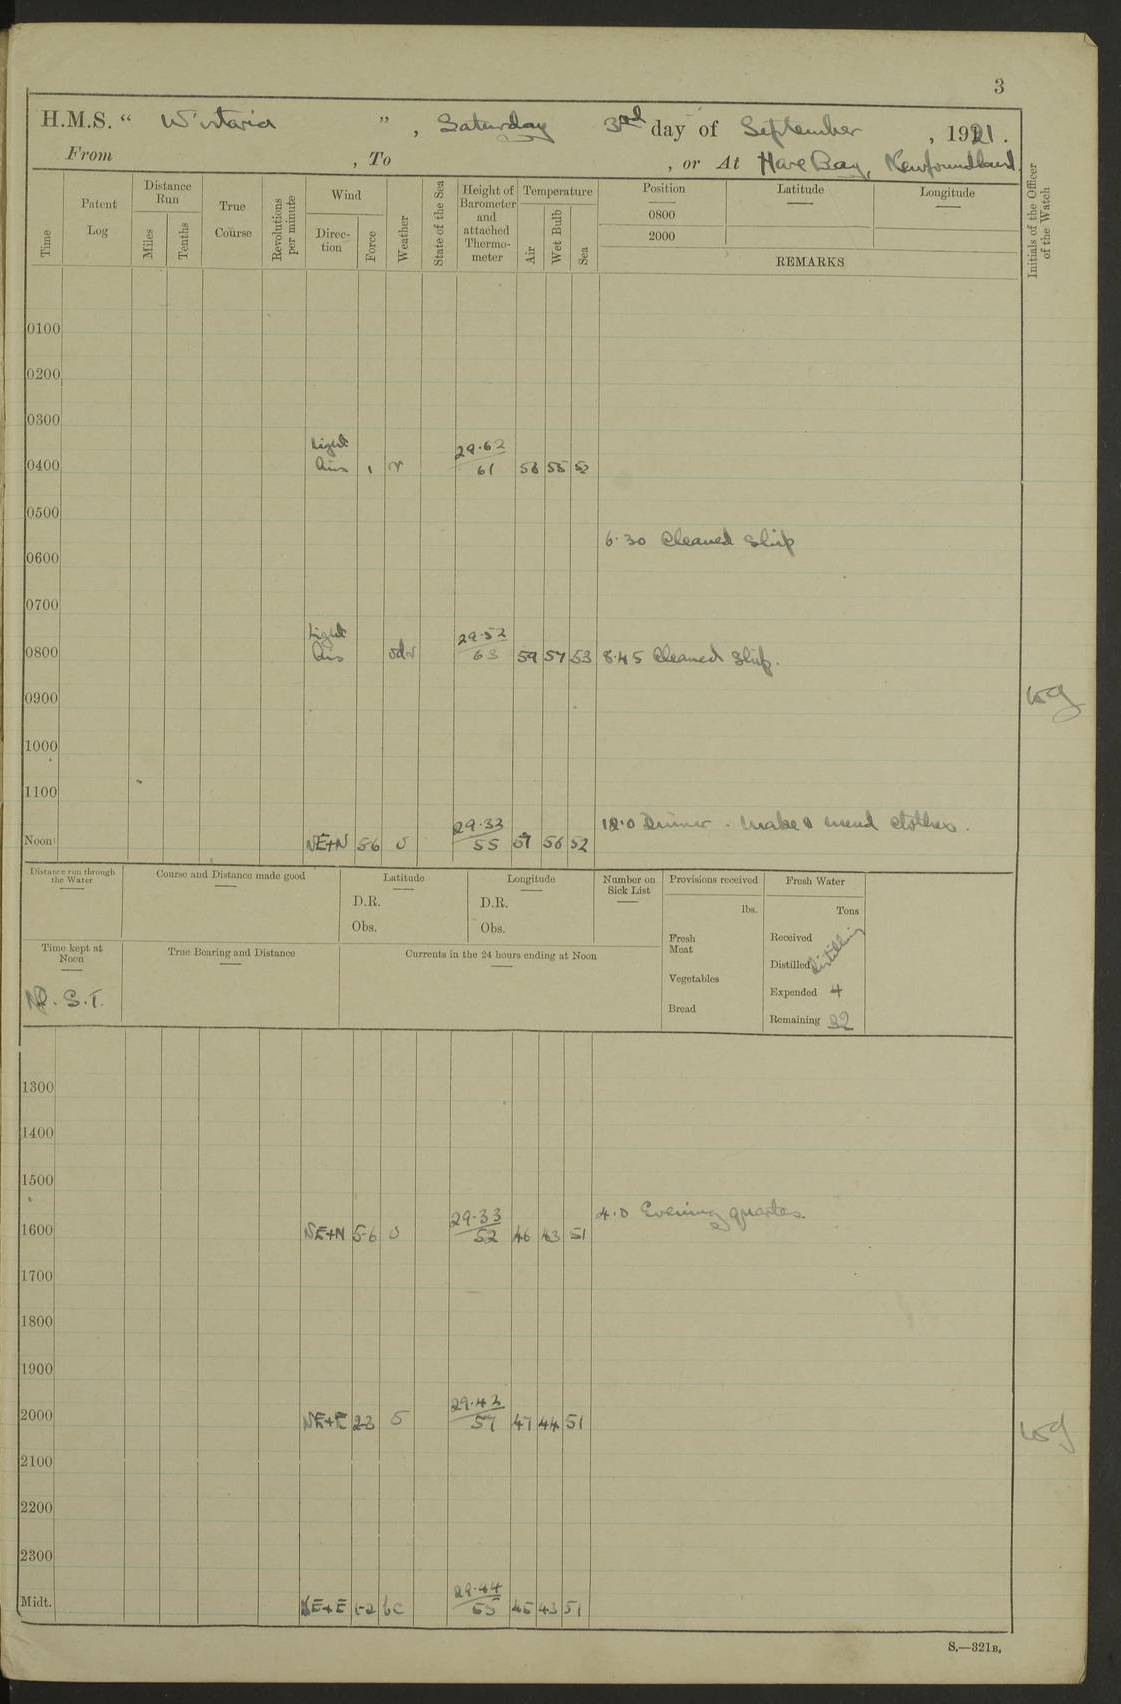 3
H.M.S. “ Wistaria ” , Saturday 3rd day of September , 1921.
From , To , or At Hare Bay, Newfoundland.
Time
Patent Log
Distance Run
Miles
Tenths
True Course
Revolutions per minute
Wind
Direc-tion
Force
Weather
State of the Sea
Height of Barometer and attached Thermo-meter
Temperature
Air
Wet Bulb
Sea
Position
0800
2000
Latitude
Longitude
REMARKS
Initials of the Officer of the Watch
0100
0200
0300
Light 29.62
0400 Airs 1 r 61 58 55 52
0500
6.30 Cleaned Ship
0600
0700
Light 29.52
0800 Airs odr 63 59 57 53 8.45 Cleaned Ship.
0900
1000
1100
29.33 12.0 Dinner. Make & mend clothes.
Noon NE+N 56 o 55 57 56 52
Distance run through the Water
Course and Distance made good
Latitude
D.R.
Obs.
Longitude
D.R.
Obs.
Number on Sick List
Provisions received
lbs.
Fresh Meat
Vegetables
Bread
Fresh Water
Tons
Received
Distilled Distilling
Expended 4
Remaining 32
Time kept at Noon
N. S.T.
True Bearing and Distance
Currents in the 24 hours ending at Noon
1300
1400
1500
29.33 4.0 Evening quarters
1600 NE+N 5-6 o 52 46 43 51
1700
1800
1900
29.43
2000 NE+E 23 o 57 47 44 51
2100
2200
2300
29.44
Midt. NE+E 1-2 bc 55 45 43 51
S.—321B.